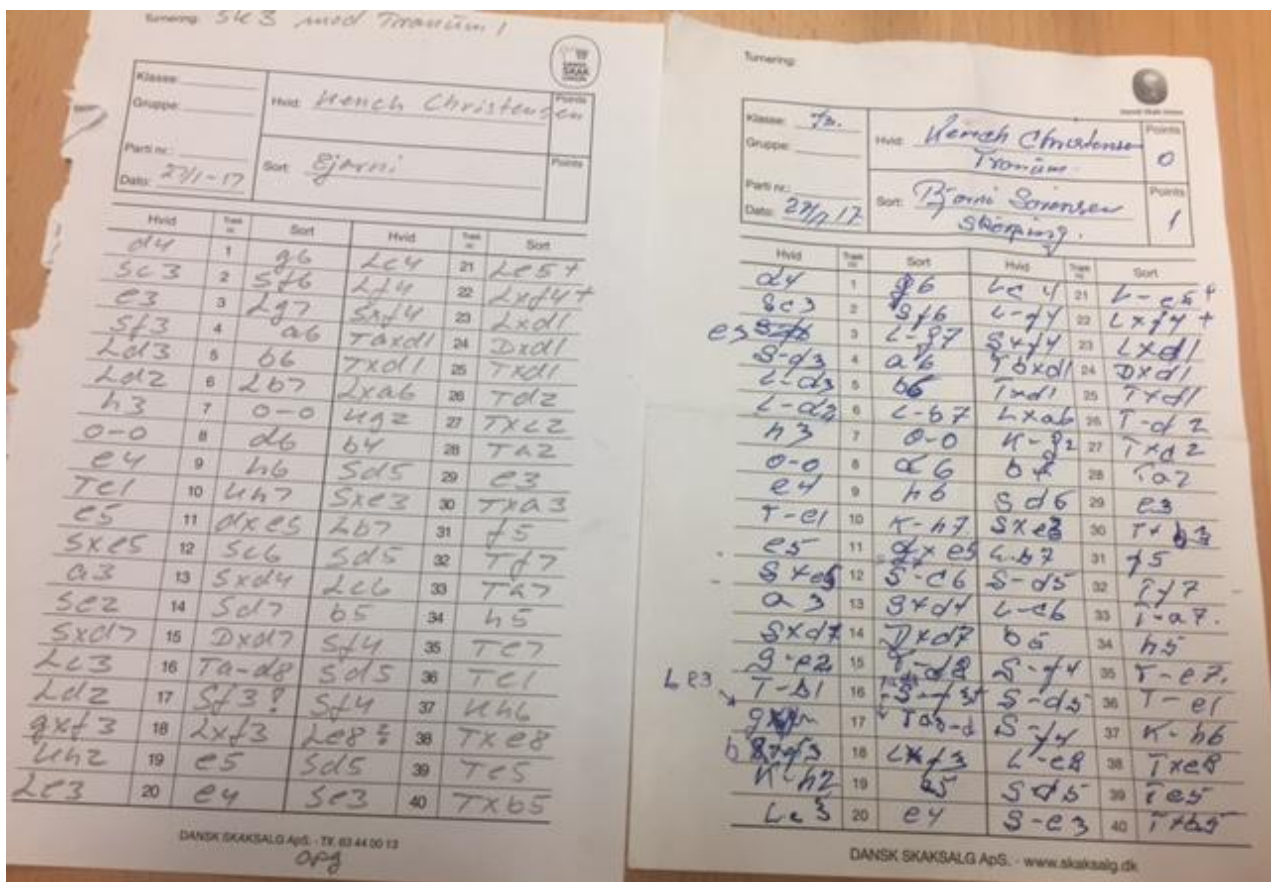 Turnering: SK3 mod Tranum 1
DANSK SKAK UNION
Klasse:
Gruppe:
Parti nr.:
Dato: 27/1-17
Hvid: Hench Christensen
Points
Sort: Bjarni
Points
Hvid Træk nr. Sort Hvid Træk nr. Sort
d4 1 g6 Lc4 21 Le5+
Sc3 2 Sf6 Lf4 22 Lxf4+
e3 3 Lg7 Sxf4 23 Lxd1
Sf3 4 a6 Taxd1 24 Dxd1
Ld3 5 b6 Txd1 25 Txd1
Ld2 6 Lb7 Lxa6 26 Td2
h3 7 0-0 Kg2 27 Txc2
0-0 8 d6 b4 28 Ta2
e4 9 h6 Sd5 29 e3
Te1 10 Kh7 Sxe3 30 Txa3
e5 11 dxe5 Lb7 31 f5
Sxe5 12 Sc6 Sd5 32 Tf7
a3 13 Sxd4 Lc6 33 Ta7
Se2 14 Sd7 b5 34 h5
Sxd7 15 Dxd7 Sf4 35 Te7
Lc3 16 Ta-d8 Sd5 36 Te1
Ld2 17 Sf3? Sf4 37 Kh6
gxf3 18 Lxf3 Le8? 38 Txe8
Kh2 19 e5 Sd5 39 Te5
Le3 20 e4 Se3 40 Txb5
DANSK SKAKSALG ApS. - Tlf. 63 44 00 13
opg
Turnering:
Dansk Skak Union
Klasse:
Gruppe:
Parti nr.:
Dato: 27/1 17
Hvid: Hench Christensen
Tranum
Points
0
Sort: Bjarni Sørensen
Skørping.
Points
1
Hvid Træk nr. Sort Hvid Træk nr. Sort
d4 1 g6 Lc4 21 L-e5+
Sc3 2 Sf6 L-f4 22 Lxf4+
e3 3 L-g7 Sxf4 23 Lxd1
S-f3 4 a6 Tbxd1 24 Dxd1
L-d3 5 b6 Txd1 25 Txd1
L-d2 6 L-b7 Lxa6 26 T-d2
h3 7 0-0 K-g2 27 Txc2
0-0 8 d6 b4 28 Ta2
e4 9 h6 Sd6 29 e3
T-e1 10 K-h7 Sxe3 30
e5 11 dxe5 L-b7 31 f5
Sxe5 12 S-c6 S-d5 32 Tf7
a3 13 Sxd4 L-c6 33 T-a7.
Sxd7 14 Dxd7 b5 34 h5
S-e2 15 T-d8 S-f4 35 T-e7.
Le3 T-b1 16 S-f3+ S-d5 36 T-e1
17 S-f4 37 K-h6
18 Lxf3 L-e8 38 Txe8
K-h2 19 e5 Sd5 39 Te5
Le3 20 e4 S-e3 40 Txb5
DANSK SKAKSALG ApS. - www.skaksalg.dk